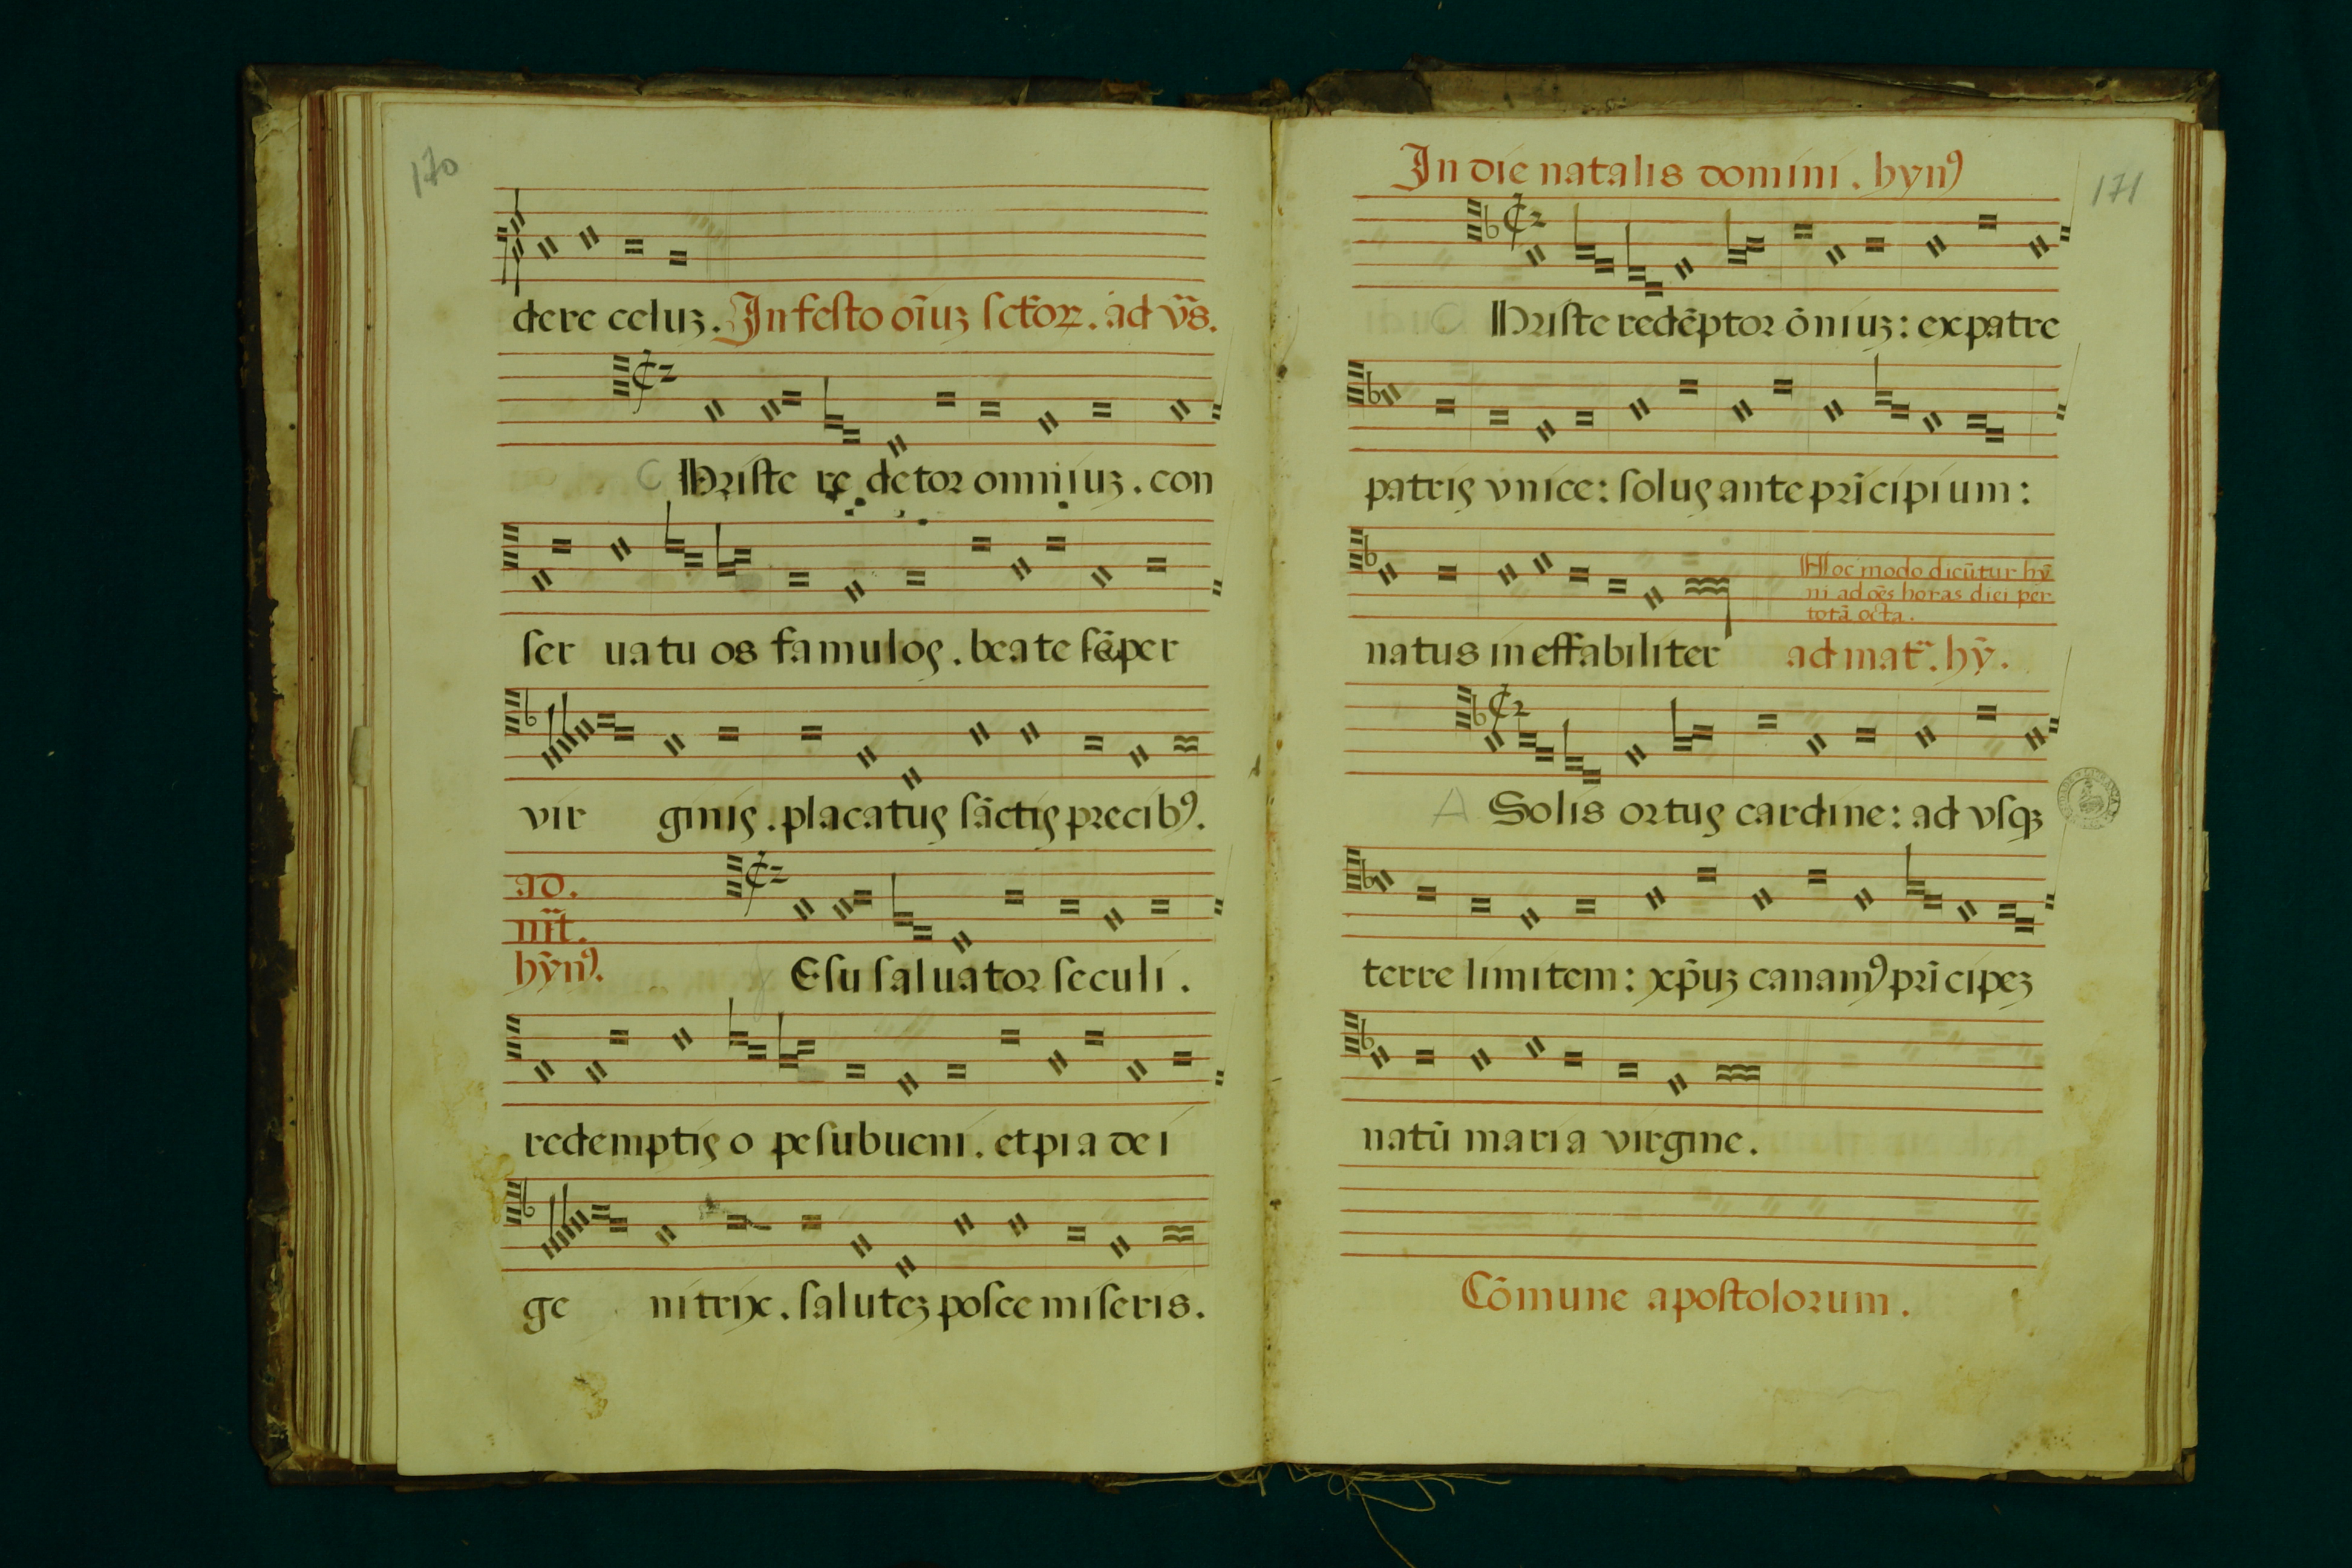 170
dere celuʒ. In festo oı̄uʒ sc̄toꝝ. ad vs̄.
C Hriste re detor omniuʒ. con
ser uatu os famulos. beate sēper
vir ginis. placatus sāctis precibꝰ.
ad.
nı̄t.
hȳnꝰ.
Esu saluator seculi.
redemptis o pe subueni. et pia dei
ge nitrix. saluteʒ posce miseris.
171
In die natalis domini. hynꝰ
C Hriste redēptor ōniuʒ: ex patre
patris vnice: solus ante prīcipium:
Hoc modo dicūtur hȳ
ni ad oēs horas diei per
totā octa.
natus ineffabiliter ad mat̄. hȳ.
A Solis ortus cardine: ad vsqʒ
terre limitem: xp̄uʒ canamꝰ prīcipeʒ
natū maria virgine.
Cōmune apostolorum.